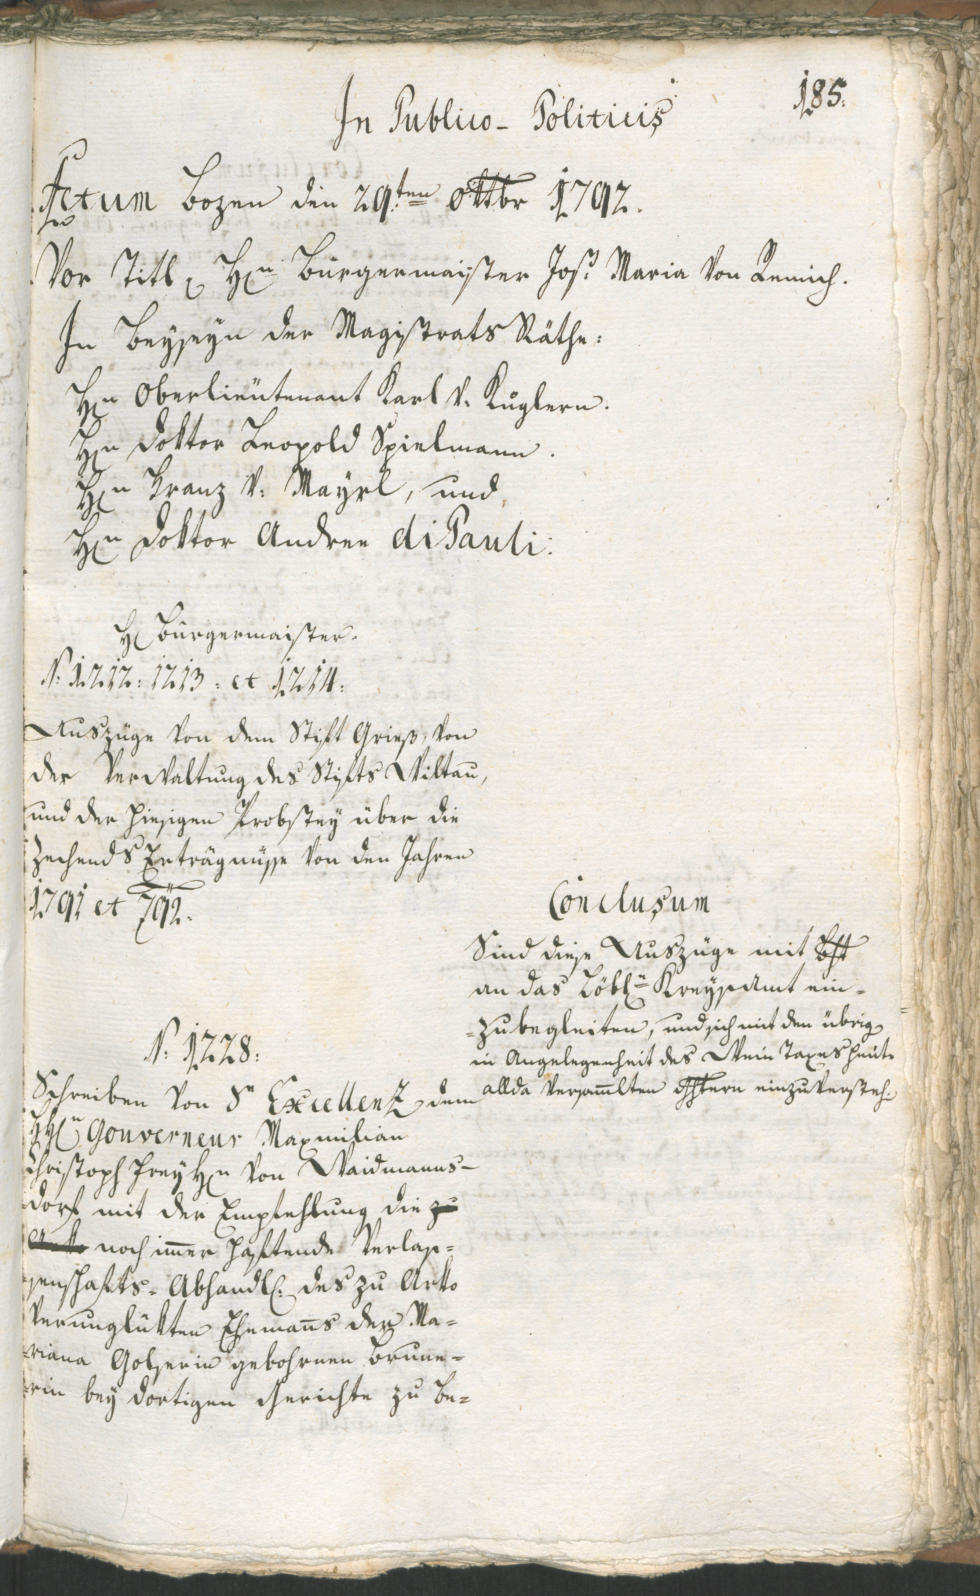 185.
In Publico-Politicis
Actum Bozen den 29.ten Oktbr 1792.
Vor Titl Hn Bürgermaister Jos. Maria von Remich.
In Beyseyn der Magistrats Räthe:
Hn Oberlieutenant Karl v. Kuglern.
Hn Doktor Leopold Spielmann.
Hn Franz v: Mayrl, und
Hn Doktor Andree di Pauli:
H Bürgermaister.
N: 1212: 1213: et 1214:
Auszüge von dem Stift Grieß, von
der Verwaltung des Stifts Wiltau,
und der hiesigen Probstey über die
Zechends Erträgnüsse von den Jahren
1791 et 792.
Conclusum
Sind diese Auszüge mit
an das Löbl. Kreysamt ein-
zubegleiten, und sich mit den übrig
in Angelegenheit des Wein Taxes heute
allda versamlten einzuversteh:
N: 1228:
Schreiben von Sr Excellenz dem
Hn Gouverneur Maxmilian
Christoph FreyHn von Waidmanns-
dorf mit der Empfehlung die zu
Arko noch imer haftende Verlas-
senschafts-Abhandl: des zu Arko
verunglükten Ehemans der Ma-
riana Golserin gebohrnen Brune-
rin bey dortigen Gerichte zu be-